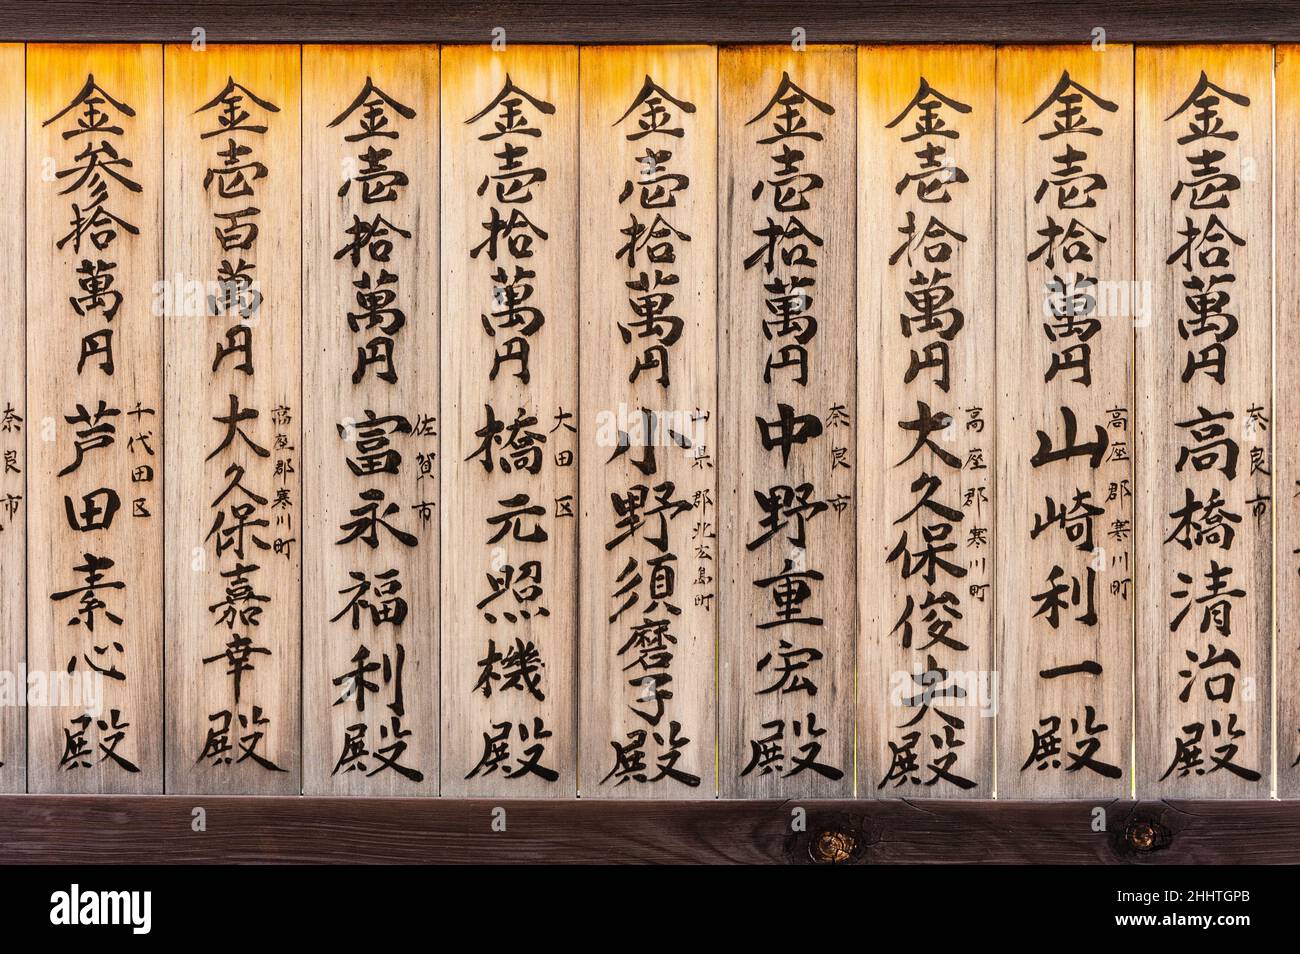 奈良市
高橋清治殿
金壱拾萬円
高座郡寒川町
金壱拾萬円
山崎利一殿
高座郡寒川町
金壱拾萬円
大久保俊夫殿
奈良市
金壱拾萬円
中野重宏殿
山県郡北広島町
金壱拾萬円
小野須磨子殿
大田区
金壱拾萬円
橋元照機殿
佐賀市
金壱拾萬円
富永福利殿
高座郡寒川町
金壱百萬円
大久保嘉幸殿
千代田区
金参拾萬円
芦田素心殿
奈良市
alamy
Image ID: 2HHTGPB
www.alamy.com